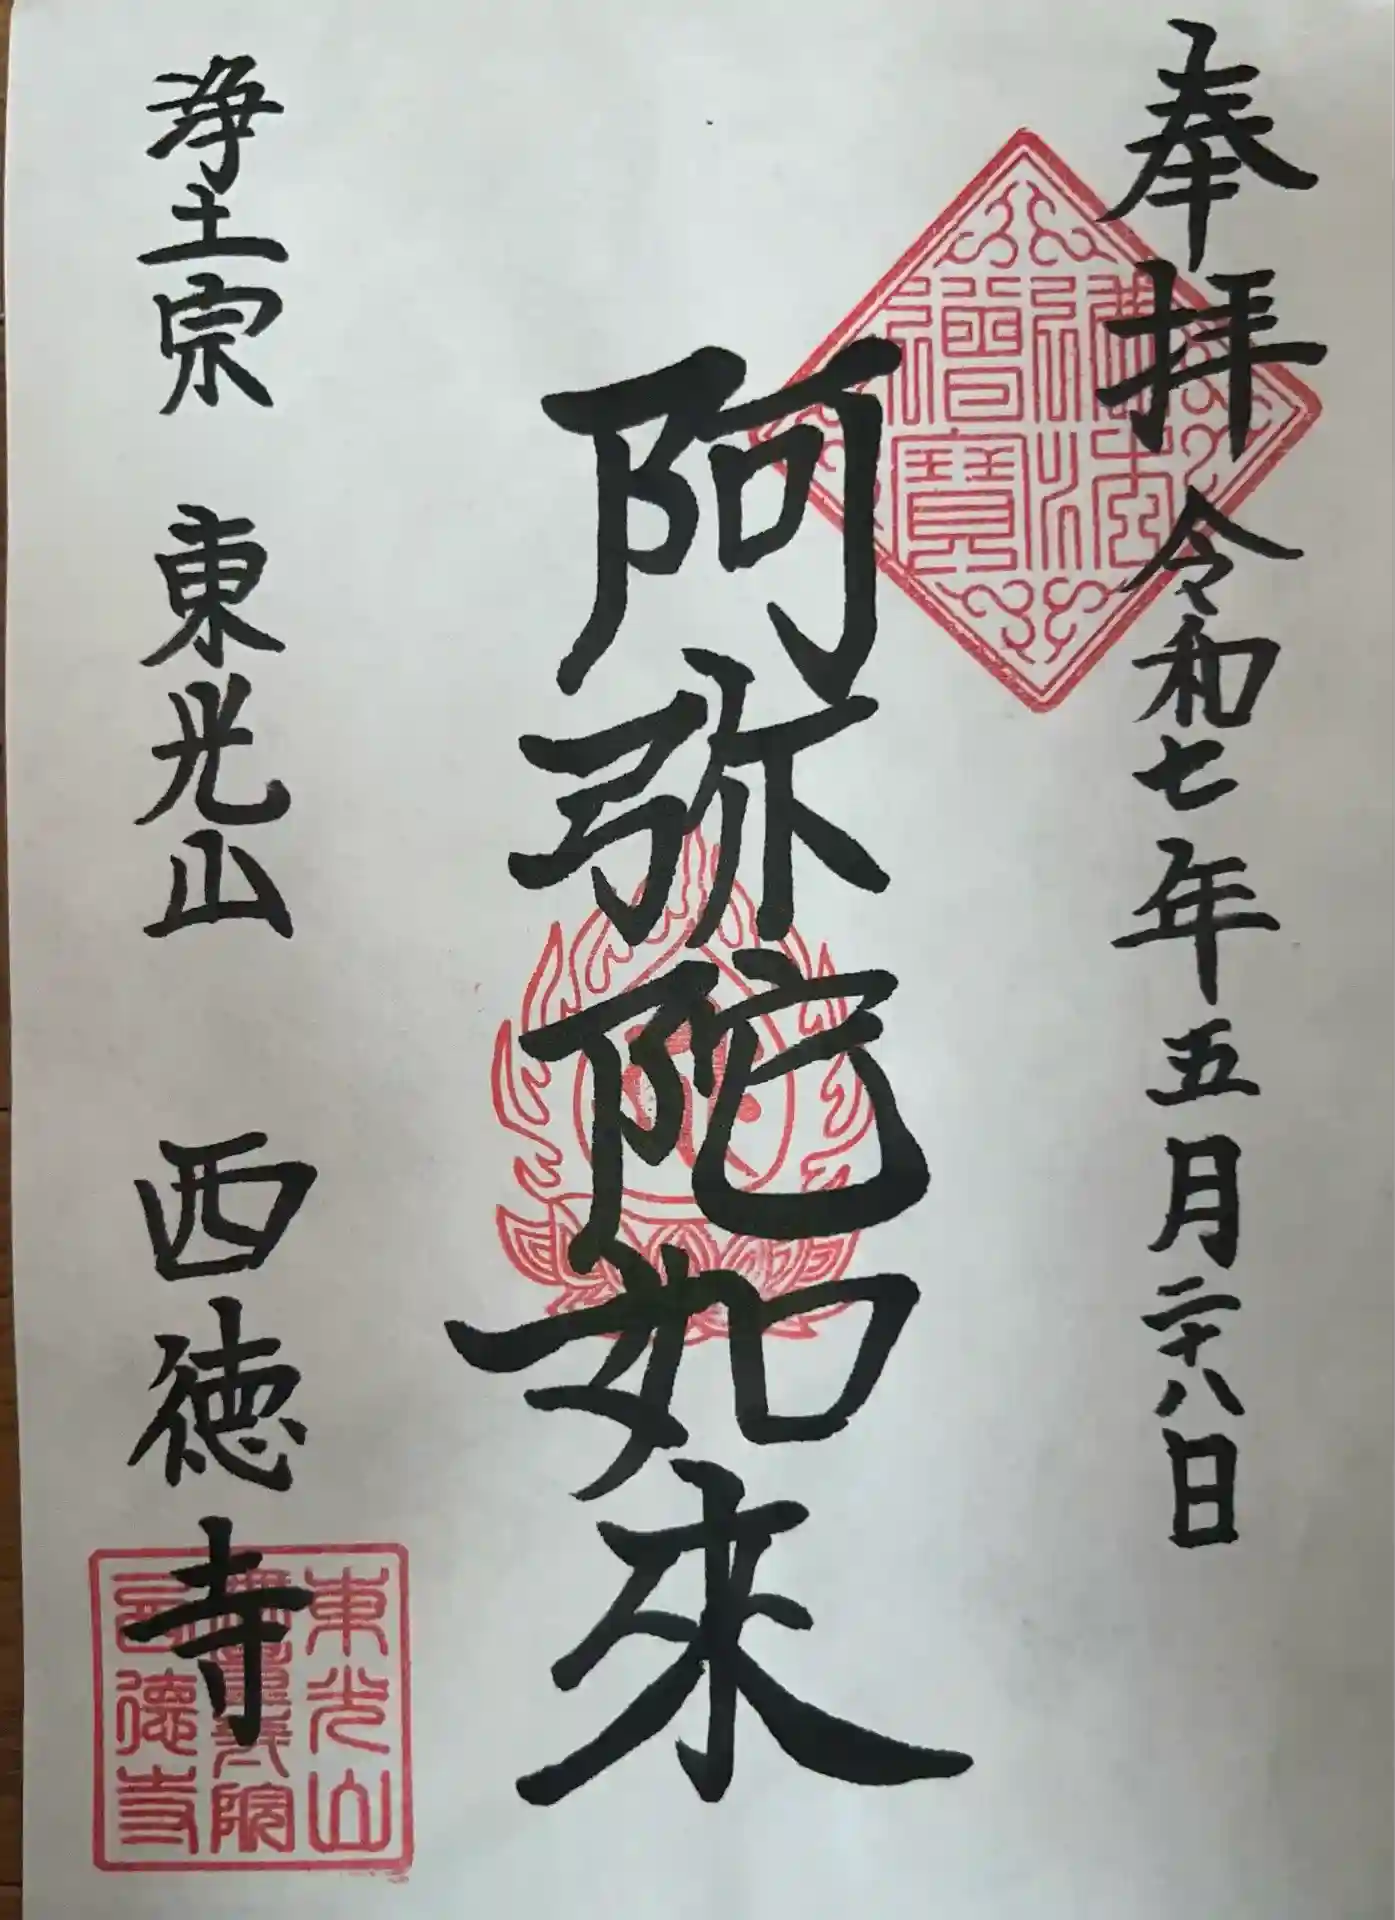 奉拝 令和七年五月二十八日
佛法
僧寳
阿弥陀如来
浄土宗 東光山 西徳寺
東光山
院
西德寺